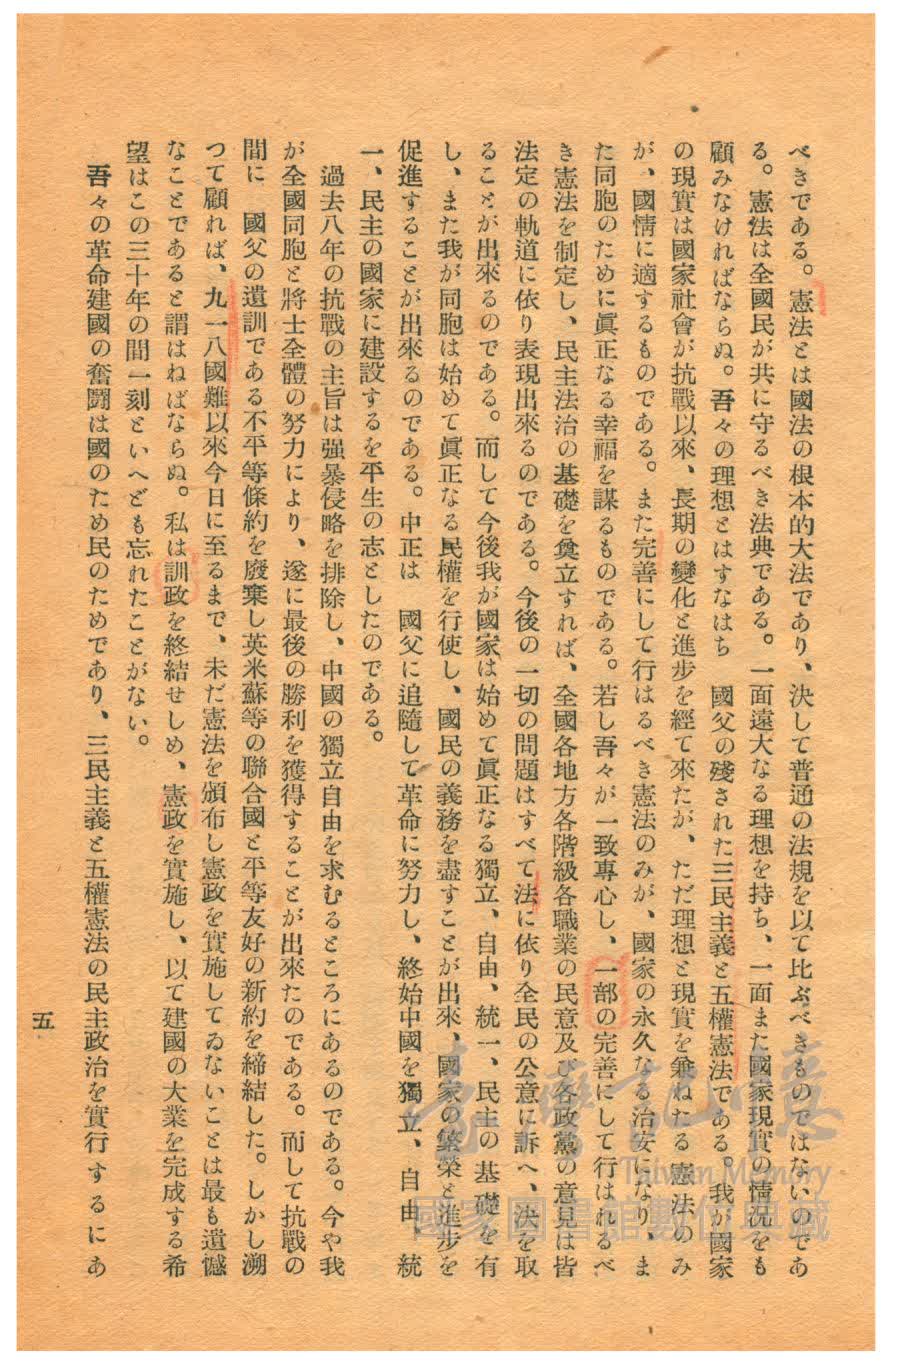 べきである。憲法とは國法の根本的大法であり、決して普通の法規を以て比ぶべきものではないのであ
る。憲法は全國民が共に守るべき法典である。一面遠大なる理想を持ち、一面また國家現實の情況をも
顧みなければならぬ。吾々の理想とはすなはち　國父の殘された三民主義と五權憲法である。我が國家
の現實は國家社會が抗戰以來、長期の變化と進步を經て來たが、ただ理想と現實を兼ねたる憲法のみ
が、國情に適するものである。また完善にして行はるべき憲法のみが、國家の永久なる治安になり、ま
た同胞のために眞正なる幸福を謀るものである。若し吾々が一致專心し、一部の完善にして行はれるべ
き憲法を制定し、民主法治の基礎を奠立すれば、全國各地方各階級各職業の民意及び各政黨の意見は皆
法定の軌道に依り表現出來るのである。今後の一切の問題はすべて法に依り全民の公意に訴へ、決を取
ることが出來るのである。而して今後我が國家は始めて眞正なる獨立、自由、統一、民主の基礎を有
し、また我が同胞は始めて眞正なる民權を行使し、國民の義務を盡すことが出來、國家の繁榮と進步を
促進することが出來るのである。中正は　國父に追隨して革命に努力し、終始中國を獨立、自由、統
一、民主の國家に建設するを平生の志としたのである。
過去八年の抗戰の主旨は强暴侵略を排除し、中國の獨立自由を求むるところにあるのである。今や我
が全國同胞と將士全體の努力により、遂に最後の勝利を獲得することが出來たのである。而して抗戰の
間に　國父の遺訓である不平等條約を廢棄し英米蘇等の聯合國と平等友好の新約を締結した。しかし溯
つて顧れば、九一八國難以來今日に至るまで、未だ憲法を頒布し憲政を實施してゐないことは最も遺憾
なことであると謂はねばならぬ。私は訓政を終結せしめ、憲政を實施し、以て建國の大業を完成する希
望はこの三十年の間一刻といへども忘れたことがない。
吾々の革命建國の奮鬪は國のため民のためであり、三民主義と五權憲法の民主政治を實行するにあ
五
臺灣記憶
Taiwan Memory
國家圖書館數位典藏